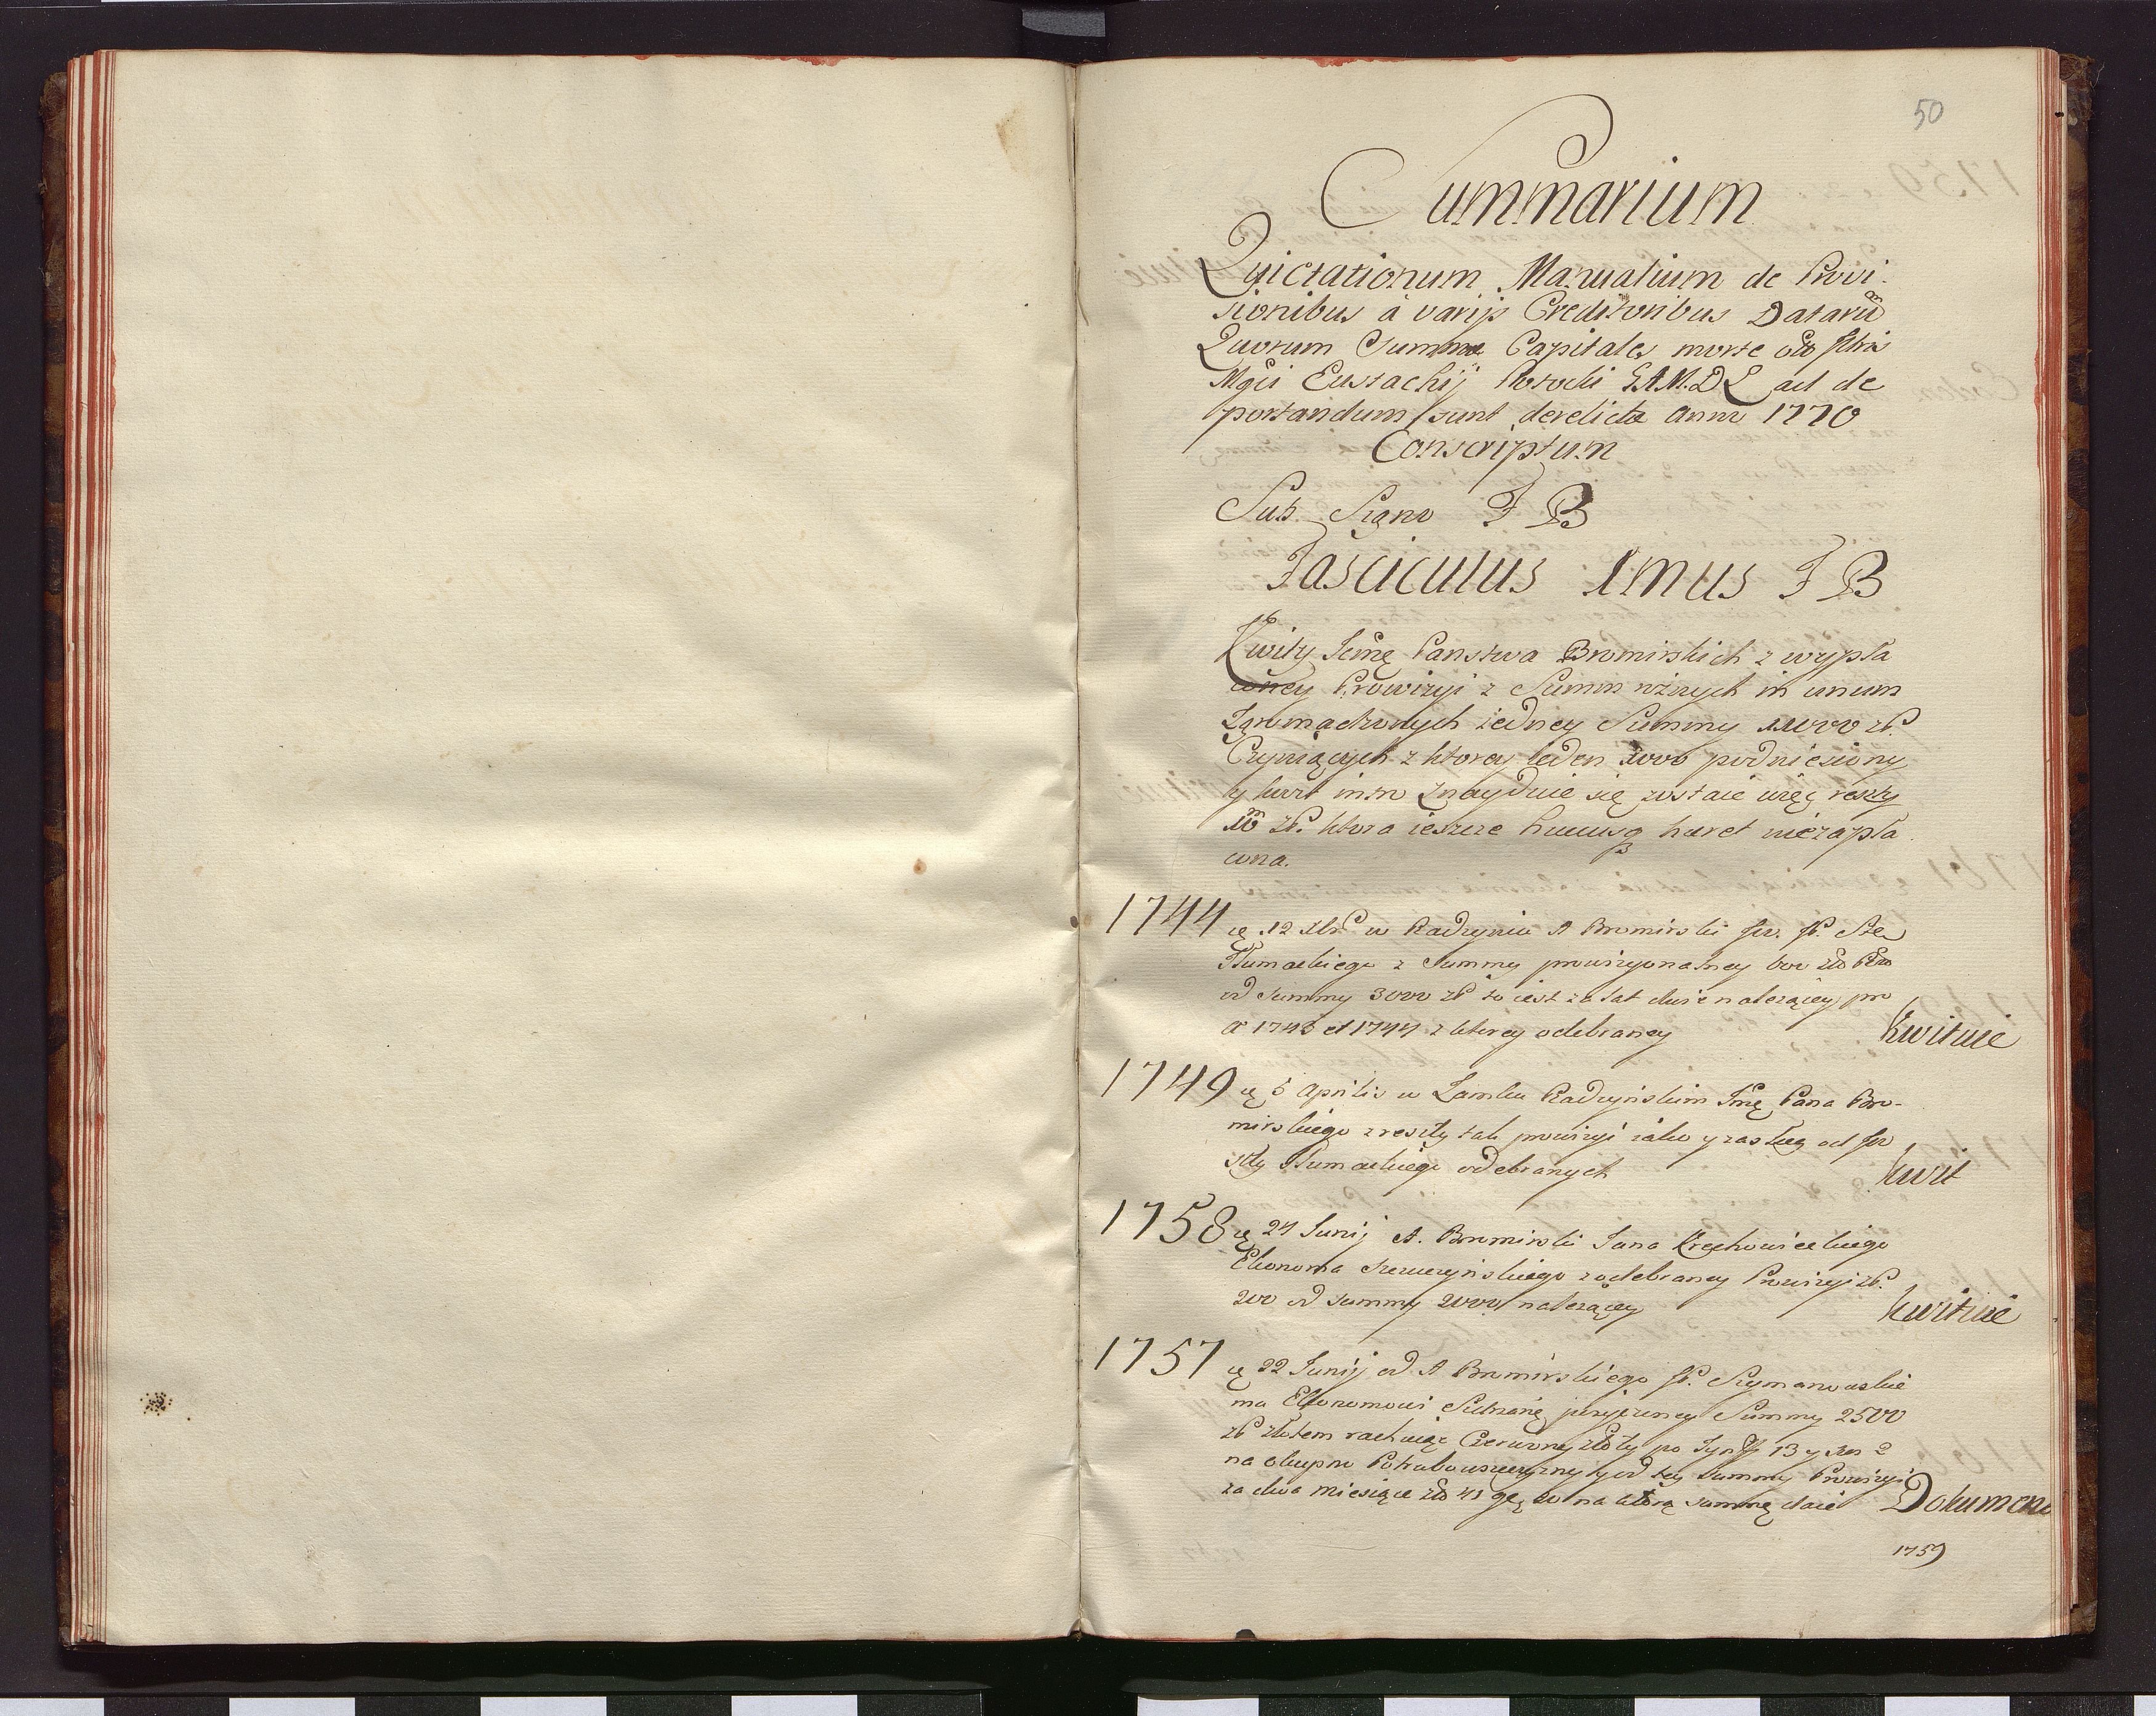 50
Summarium
Quietationum Manualium de Provi-
sionibus à varijs Creditoribus Dataru͞m
Quorum Summae Capitales morte
Mgci Eustachij Potocki G.A.M.D.L. ad de
portandum sunt derelictae anno 1770
Conscriptum
Sub Signo F B
Fasciculus 1mus F B
Kwity Państwa Bromirskich z wypła
coney Prowizyi z Summ rożnych in unum
Zgromadzonych iedney Summy 11000 zł.
Czyniących z ktorey ieden 1000 podniesiony
y kwit inro znayduie się zostaie więc reszty
10 zł. ktora ieszcze hucusq haret niezapła
cona.
1744 12 w Radzyniu A Bromirski
Tłumackiego z Summy prowizyonalney 600
od summy 3000 zł to iest za lat dwie należącey pro
a 1743 et 1744 z ktorey odebraney Kwituie
1749 5 Aprilis w Zamku Radzyńskim Pana Bro-
mirskiego z reszty tak prowizyi iako y zasług od
Tłumackiego odebranych Kwit
1758 24 Junij A. Bromirski Jana Krzechowieckiego
Ekonoma z odebraney Prowizyi zł.
200 od summy 2000 należącey Kwituie
1757 22 Junij od A Bromirskiego Szymanowskie
mu Ekonomowi pożyczoney Summy 2500
zł złotem rachuiąc Czerwony złoty po 13 y
na okupno y od tey Summy Prowizyi
za dwa miesiące na ktorą summę daie Dokument
1759